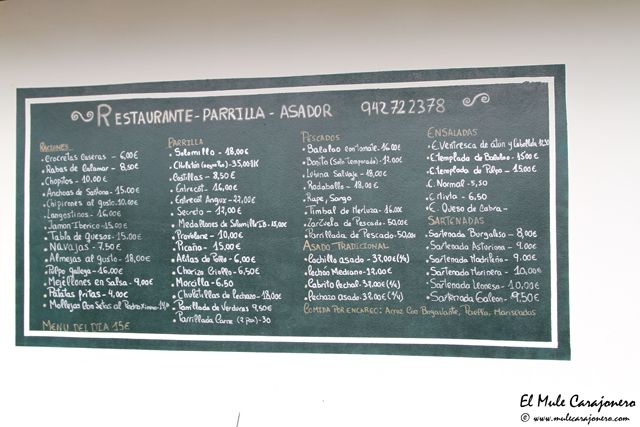 RESTAURANTE-PARRILLA-ASADOR 942722378
RACIONES
.Crocretas Caseras - 6,00€
.Rabas de Calamar - 8,50€
.Chopitos - 10,00€
.Anchoas de Santoña - 15.00€
.Chipirones al gusto. 10.00€
.Langostinos - 16,00€
.Jamon Iberico - 15.00€
.Tabla de Quesos - 15.00€
.Navajas - 7.50€
.Almejas al gusto - 18,00€
.Pulpo gallega - 16.00€
.Mejillones en Salsa - 9,00€
.Patatas fritas - 4,00€
.Mollejas Con Setas al Pedro Ximn-
MENU DEL DIA 15€
PARRILLA
.Solomillo - 18,00€
.Chuleton - 35,00€/K
.Costillas - 8,50€
.Entrecot - 16,00€
.Entrecot Angus - 22,00€
.Secreto - 12,00€
.Medallones de Solomillo Ib. 15,00€
.Provolone - 10,00€
.Picaña - 15,00€
.Alitas de Pollo - 6,00€
.Chorizo Criollo - 6,50€
.Morcilla - 6,50
.Chuletillas de Lechazo - 18,00€
.Parrillada de Verduras 9,50€
.Parrillada Carne (2 per) - 30
PESCADOS
.Bacalao con tomate. 16.00€
.Bonito (Según Temporada) - 12.00€
.Lubina Salvaje - 18,00€
.Rodaballo - 18.00€
.Rape, Sargo
.Timbal de Merluza - 16.00€
.Zarzuela de Pescado - 50.00€
.Parrillada de Pescado - 50,00€
ASADO TRADICIONAL
.Cochillo asado - 32,00€ (1/4)
.Pechón Mediano - 12.00€
.Cabrito Lechal - 32,00€ (1/4)
.Lechazo asado - 32,00€ (1/4)
COMIDA POR ENCARGO: Arroz Con Bogavante, Paella, Mariscadas
ENSALADAS
.E. Ventresca de atun y Cebolleta
.E. templada de Bacalao - 15.00€
.E. templada de Pulpo - 15.00€
.E. Normal - 5,50
.E. Mixta - 6.50
.E. Queso de Cabra -
SARTENADAS
.Sartenada Burgalesa - 8,00€
.Sartenada Asturiana - 9.00€
.Sartenada Madrileña - 9.00€
.Sartenada Marinera - 10,00€
.Sartenada Leonesa - 10,00€
.Sartenada Galeon - 9,50€
El Mule Carajonero
© www.mulecarajonero.com